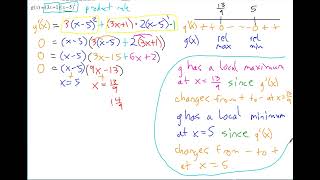 product rule
g'(x) = 3(x-5)² + (3x+1)·2(x-5)·1
0 = (x-5)(3(x-5) + 2(3x+1))
0 = (x-5)(3x-15+6x+2)
0 = (x-5)(9x-13)
x=5 x=13/9
1 4/9
13/9 5
g'(x) + + 0 - - 0 + +
rel max rel min
g has a local maximum
at x=13/9 since g'(x)
changes from + to - at x=13/9
g has a local minimum
at x=5 since g'(x)
changes from - to +
at x=5